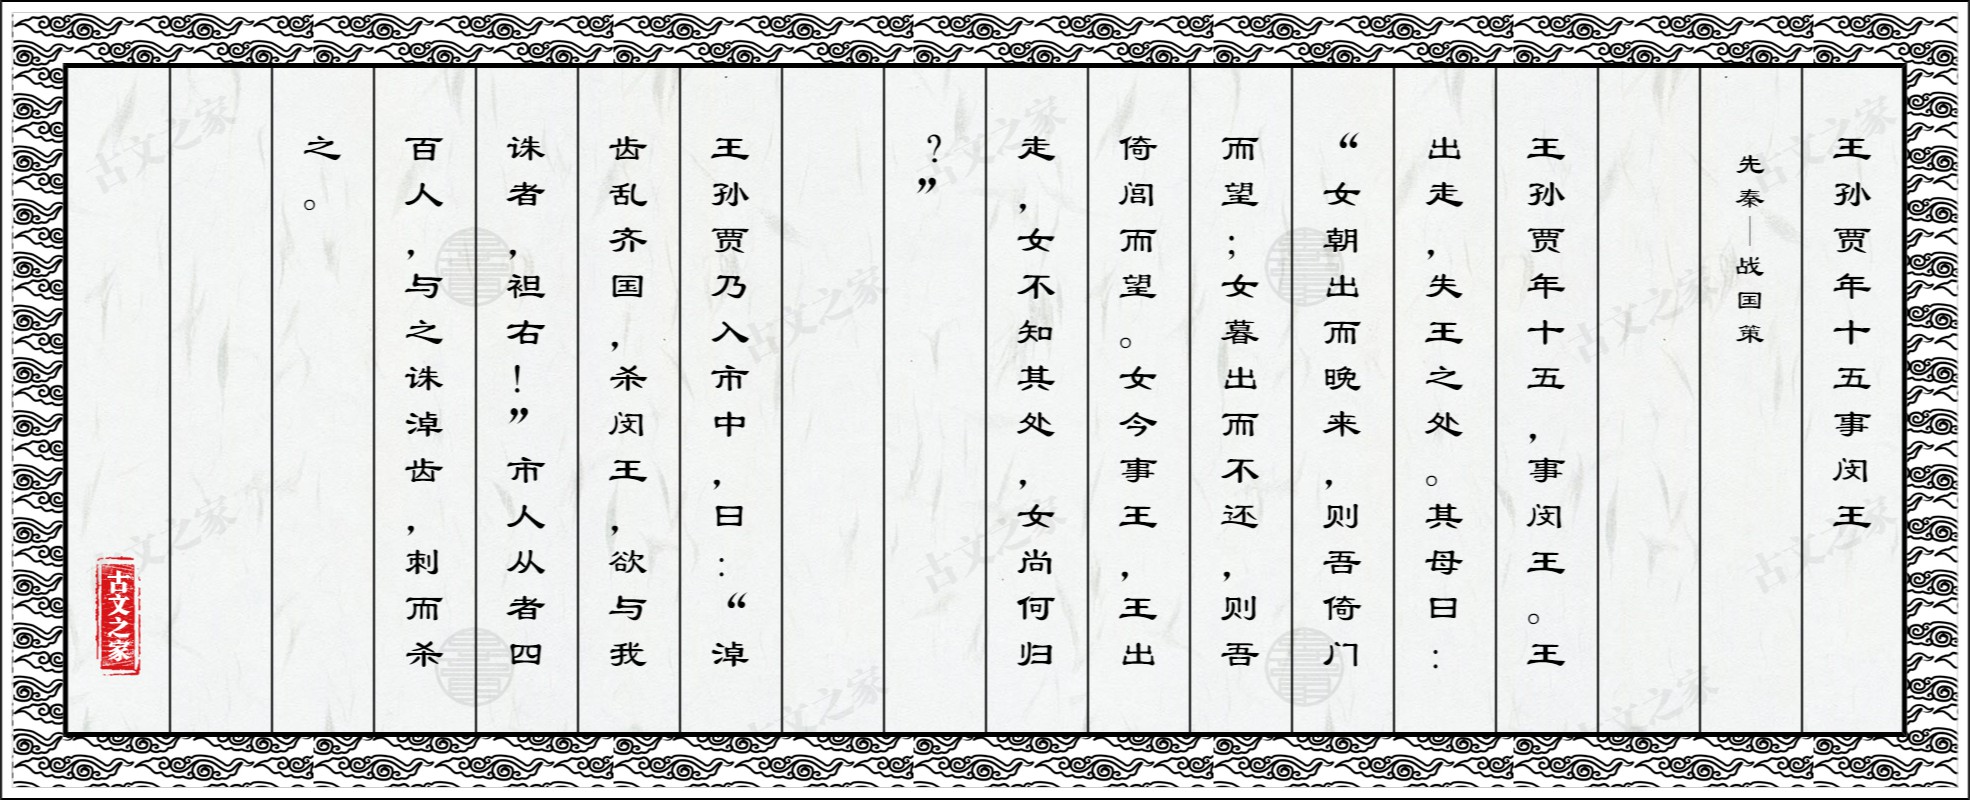 王孙贾年十五事闵王
先秦—战国策
王孙贾年十五，事闵王。王
出走，失王之处。其母曰：
“女朝出而晚来，则吾倚门
而望；女暮出而不还，则吾
倚闾而望。女今事王，王出
走，女不知其处，女尚何归
？”
王孙贾乃入市中，曰：“淖
齿乱齐国，杀闵王，欲与我
诛者，袒右！”市人从者四
百人，与之诛淖齿，刺而杀
之。
古文之家